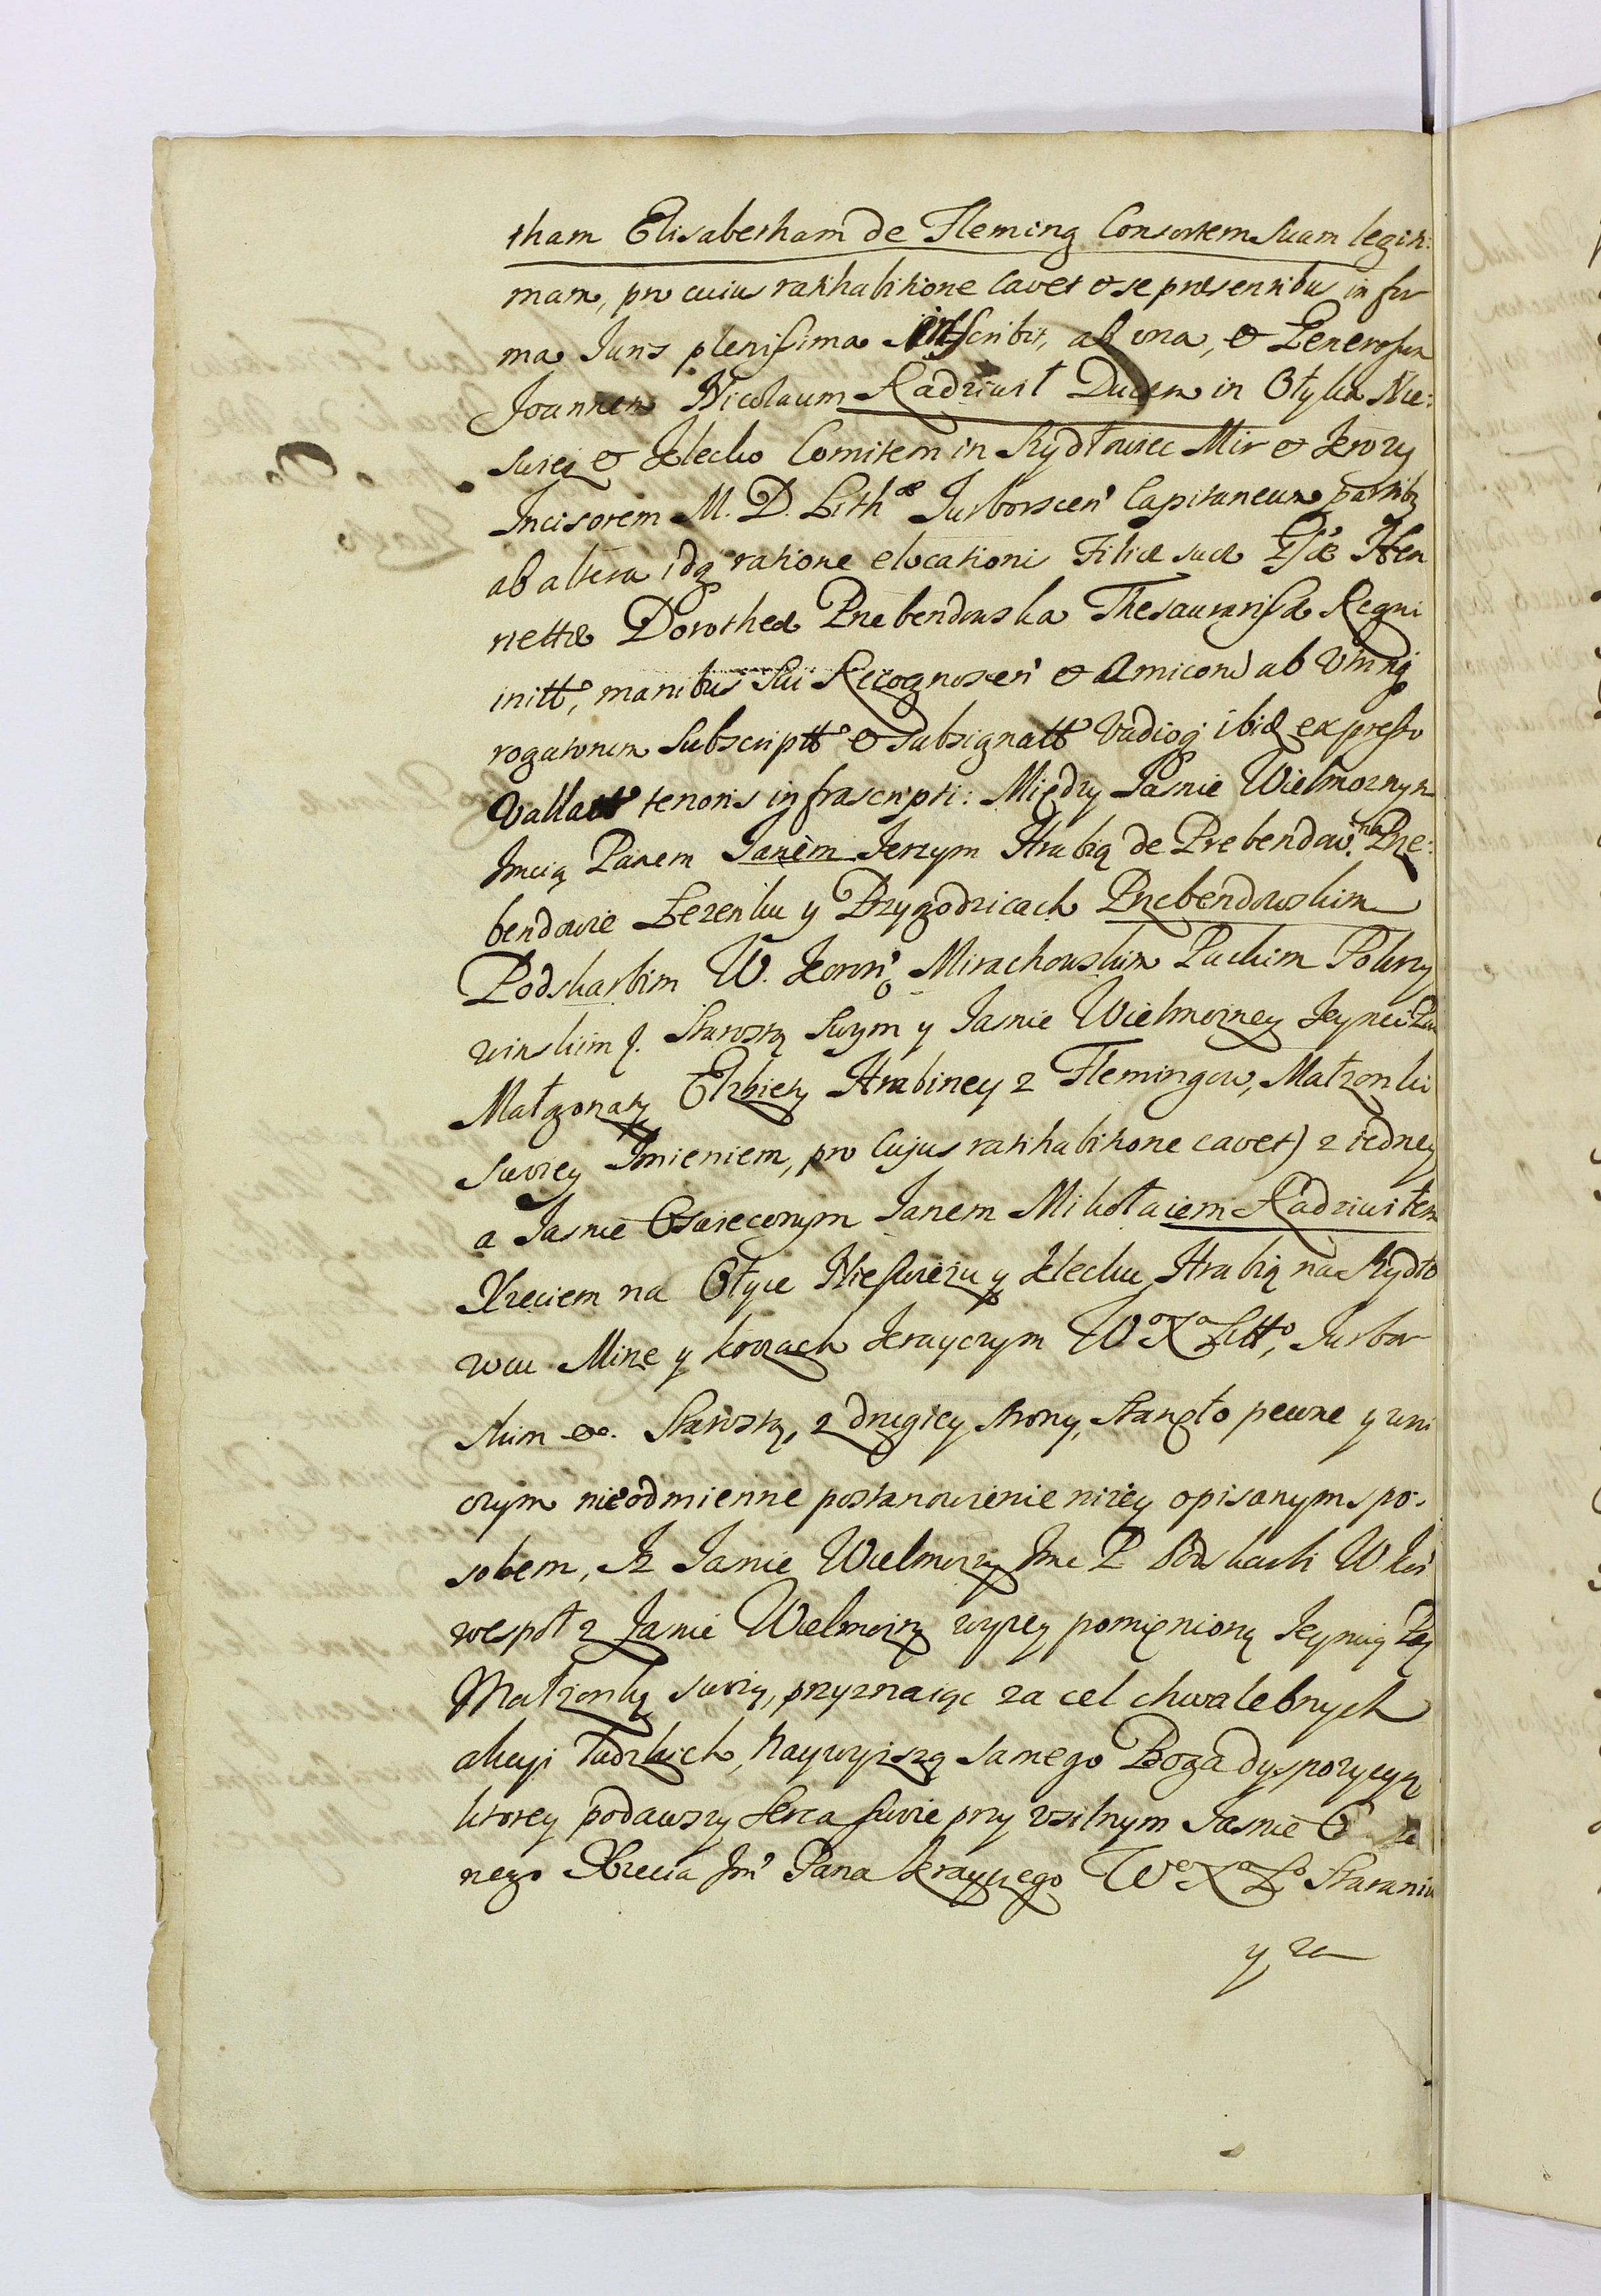 tham Elisabetham de Fleming Consortem Suam legiti:
mam, pro cuius ratihabitione cavet et se præsentibus in for
ma Juris plenissima inscribit, ab una, et Generosum
Joannem Nicolaum Radziwił Ducem in Ołyka Nie:
swież et Klecko Comitem in Szydłowiec Mir et Krozy
Incisorem M. D. Lithæ Jurborscen Capitaneum partibq
ab altera idq ratione elocationi Filiæ suæ Gsæ Hen
riettæ Dorotheæ Prebendowska Thesaurarissæ Regni
initt, manibus sui Recognoscen et Amicor ab utrinq
rogatorum Subscriptt et subsignatt vadioq ibid expresso
Vallatt tenoris infrascripti: Między Jasnie Wielmoznym
Jmcią Panem Janem Jerzym Hrabią de Prebendow. na Prze:
bendowie Lezenku y Przygodzicach Przebendowskim
Podskarbim W. Koron Mirachowskim Puckim Pokrzy
winskim J. Starostą Swym y Jasnie Wielmozney Jeymci Pan
Małgorzaty Elzbiety Hrabiney z Flemingow, Małzonki
swoiey Jmieniem, pro Cujus ratihabitione cavet) z iedney
a Jasnie Oswieconym Janem Mikołaiem Radziwiłem
Xzeciem na Ołyce Nieswiezu y Klecku Hrabią na Szydło
wcu Mirze y krozach Krayczym Wo Xa Litto, Jurbor
skim &c. Starostą, z drugiey strony, stanęło pewne y wni
czym nieodmienne postanowienie nizey opisanym spo:
sobem, Jz Jasnie Wielmozny Jmc P Podskarbi W. Kor
wespoł z Jasnie Wielmozną wyzey pomienioną Jeymcią Pą
Małzonką swoią, przyznaiąc za cel chwalebnych
akcyi ludzkich, Naywyzszą samego Boga dyspozycyą
ktorey podawszy Serca swoie przy vsilnym Jasnie O
nego Xzecia Jm Pana Krayczego Wo Xa Lo Staraniu
y za